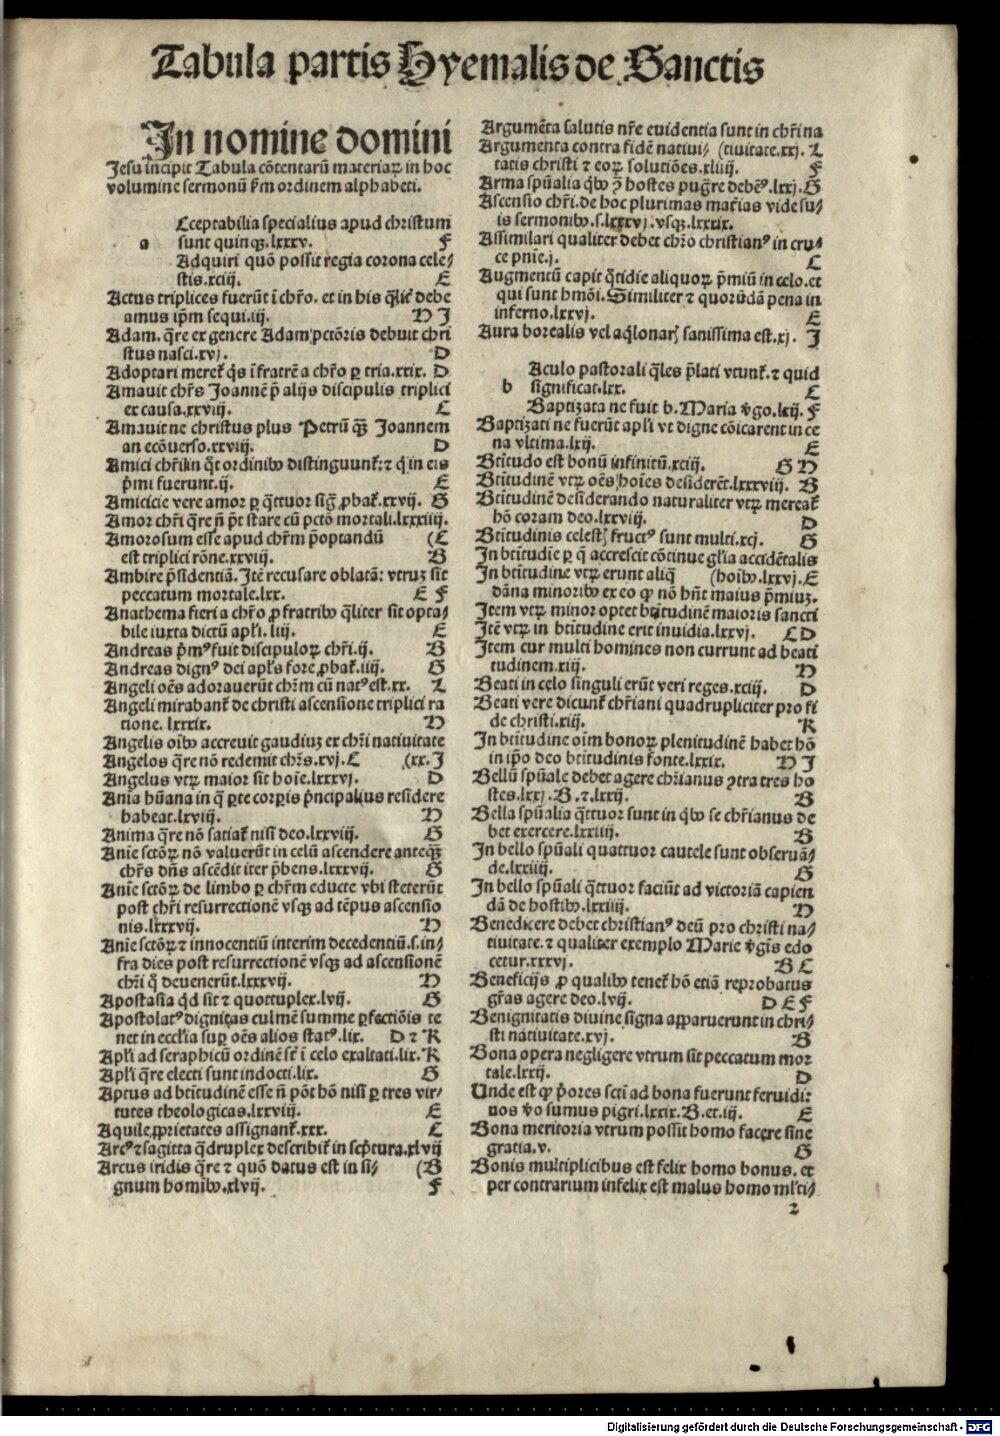 Tabula partis Hyemalis de Sanctis
In nomine domini
Jesu incipit Tabula cõtentarũ materiaꝝ in hoc
volumine sermonũ ẜm ordinem alphabeti.
a
Cceptabilia specialius apud christum
sunt quinqꝫ.lxxxv. F
Adquiri quõ possit regia corona cele⸗
stis.xciij. E
Actus triplices fuerũt ĩ chr̃o. et in his q̃lit̃ debe
amus ip̃m sequi.iij. H J
Adam. q̃re ex genere Adam pctõris debuit chri
stus nasci.xvj. D
Adoptari meret̃ q̃s ĩ fratrẽ a chr̃o ꝑ tria.xxix. D
Amauit chr̃s Joannẽ p̃ alijs discipulis triplici
ex causa.xxviij. C
Amauit ne christus plus Petrũ qꝫ̃ Joannem
an ecõuerso.xxviij. D
Amici chr̃i in q̃t ordinibꝰ distinguunt̃: ⁊ q̃ in eis
p̃mi fuerunt.ij. E
Amicicie vere amor ꝑ q̃ttuor sig̃ ꝓbat̃.xxvij. G
Amor chr̃i q̃re ñ p̃t stare cũ pctõ mortali.lxxxiiij.
Amorosum esse apud chr̃m p̃optandũ (C
est triplici rõne.xxviij. B
Ambire p̃sidentiã. Itẽ recusare oblatã: vtruꝫ sit
peccatum mortale.lxx. E F
Anathema fieri a chr̃o ꝓ fratribꝰ q̃liter sit opta⸗
bile iuxta dictũ apl̃i.liij. E
Andreas p̃mꝰ fuit discipuloꝝ chr̃i.ij. B
Andreas dignꝰ dei apl̃s fore ꝓbat̃.iiij. G
Angeli oẽs adorauerũt chr̃m cũ natꝰ est.xx. L
Angeli mirabant̃ de christi ascensione triplici ra
tione. lxxxix. H
Angelis oĩbꝰ accreuit gaudiuꝫ ex chr̃i natiuitate
Angelos q̃re nõ redemit chr̃s.xvj.C (xx. J
Angelus vtꝝ maior sit hoĩe.lxxxvj. D
Aĩa hũana in q̃ ꝑte corꝑis p̃ncipalius residere
habeat.lxviij. H
Anima q̃re nõ satiat̃ nisi deo.lxxviij. G
Anĩe sctõꝝ nõ valuerũt in celũ ascendere anteqꝫ̃
chr̃s dñs ascẽdit iter p̃bens.lxxxvij. G
Anĩe sctõꝝ de limbo ꝑ chr̃m educte vbi steterũt
post chr̃i resurrectionẽ vsqꝫ ad tẽpus ascensio
nis.lxxxvij. H
Anĩe sctõꝝ ⁊ innocentiũ interim decedentiũ.s.in⸗
fra dies post resurrectionẽ vsqꝫ ad ascensionẽ
chr̃i q̃ deuenerũt.lxxxvij. H
Apostasia q̃d sit ⁊ quottuplex.lvij. G
Apostolatꝰ dignitas culmẽ summe ꝑfectiõis te
net in eccl̃ia suꝑ oẽs alios statꝰ.lix. D ⁊ K
Apl̃i ad seraphicũ ordinẽ sẽ̃t ĩ celo exaltati.lix.K
Apl̃i q̃re electi sunt indocti.lix. G
Aptus ad btĩtudinẽ esse ñ põt hõ nisi ꝑ tres vir⸗
tutes theologicas.lxxviij. E
Aquile ꝓprietates assignant̃.xxx. C
Arcꝰ ⁊ sagitta q̃druplex describit̃ in scp̃tura.xlvij
Arcus iridis q̃re ⁊ quõ datus est in si⸗ (B
gnum hominibꝰ.xlvij. F
Argumẽta salutis nr̃e euidentia sunt in chr̃i na
Argumenta contra fidẽ natiui⸗ (tiuitate.xxj. L
tatis christi ⁊ eoꝝ solutiões.xliiij. F
Arma spũalia q̃bꝰ ꝯ̃ hostes pug̃re debẽꝰ.lxxj.G
Ascensio chr̃i. de hoc plurimas mat̃ias vide su⸗
is sermonibꝰ.s.lxxxvj.vsqꝫ.lxxxix.
Assimilari qualiter debet chr̃o christianꝰ in cru⸗
ce pnĩe.j. C
Augmentũ capit q̃tidie aliquoꝝ p̃miũ in celo.et
qui sunt hmõi. Similiter ⁊ quorũdã pena in
inferno.lxxvj. E
Aura borealis vel aq̃lonaris sanissima est.xj. J
b
Aculo pastorali q̃les p̃lati vtunt̃. ⁊ quid
significat.lxx. C
Baptizata ne fuit b. Maria v̾go.lxij. F
Baptizati ne fuerũt apl̃i vt digne cõicarent in ce
na vltima.lxij. E
Btĩtudo est bonũ infinitũ.xciij. G H
Btĩtudinẽ vtꝝ oẽs hoĩes desiderẽt.lxxxviij. B
Btĩtudinẽ desiderando naturaliter vtꝝ mereat̃
hõ coram deo.lxxviij. D
Btĩtudinis celestis fructꝰ sunt multi.xcj. G
In btĩtudĩe ꝑ q̃ accrescit cõtinue gl̃ia accidẽtalis
In btĩtudine vtꝝ erunt aliq̃ (hoĩbꝰ.lxxvj.E
dãna minoribꝰ ex eo ꝙ nõ hñt maius p̃miuꝫ.
Item vtꝝ minor optet btĩtudinẽ maioris sancti
Itẽ vtꝝ in btĩtudine erit inuidia.lxxvj. C D
Item cur multi homines non currunt ad beati
tudinem.xiij. H
Beati in celo singuli erũt veri reges.xciij. D
Beati vere dicunt̃ chr̃iani quadrupliciter pro fi
de christi.xiij. K
In btĩtudine oĩm bonoꝝ plenitudinẽ habet hõ
in ip̃o deo btĩtudinis fonte.lxxix. H J
Bellũ spũale debet agere chr̃ianus ꝯtra tres ho
stes.lxxj.B.⁊.lxxij. B
Bella spũalia q̃ttuor sunt in q̃bꝰ se chr̃ianus de
bet exercere.lxxiiij. B
In bello spũali quattuor cautele sunt obseruã⸗
de.lxxiiij. G
In bello spũali q̃ttuor faciũt ad victoriã capien
dã de hostibꝰ.lxxiiij. H
Benedicere debet christianꝰ deũ pro christi na⸗
tiuitate.⁊ qualiter exemplo Marie v̾gĩs edo
cetur.xxxvj. B C
Beneficijs ꝓ qualibꝰ tenet̃ hõ etiã reprobatus
gr̃as agere deo.lvij. D E F
Benignitatis diuine signa apparuerunt in chri⸗
sti natiuitate.xvj. B
Bona opera negligere vtrum sit peccatum mor
tale.lxxij. D
Unde est ꝙ p̃ores scti ad bona fuerunt feruidi:
nos v̾o sumus pigri.lxxix.B.et.iij. E
Bona meritoria vtrum possit homo facere sine
gratia.v. G
Bonis multiplicibus est felix homo bonus. et
per contrarium infelix est malus homo ml̃ti⸗
2
Digitalisierung gefördert durch die Deutsche Forschungsgemeinschaft - DFG